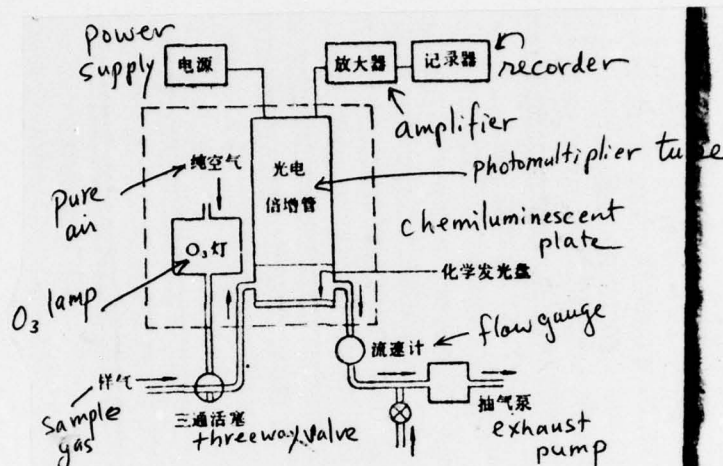 power
supply
电源
放大器
记录器
recorder
amplifier
纯空气
光电
倍增管
photomultiplier tube
Pure
air
O₃灯
chemiluminescent
plate
化学发光盘
O₃ lamp
流速计
flow gauge
样气
Sample
gas
三通活塞
threeway valve
抽气泵
exhaust
pump